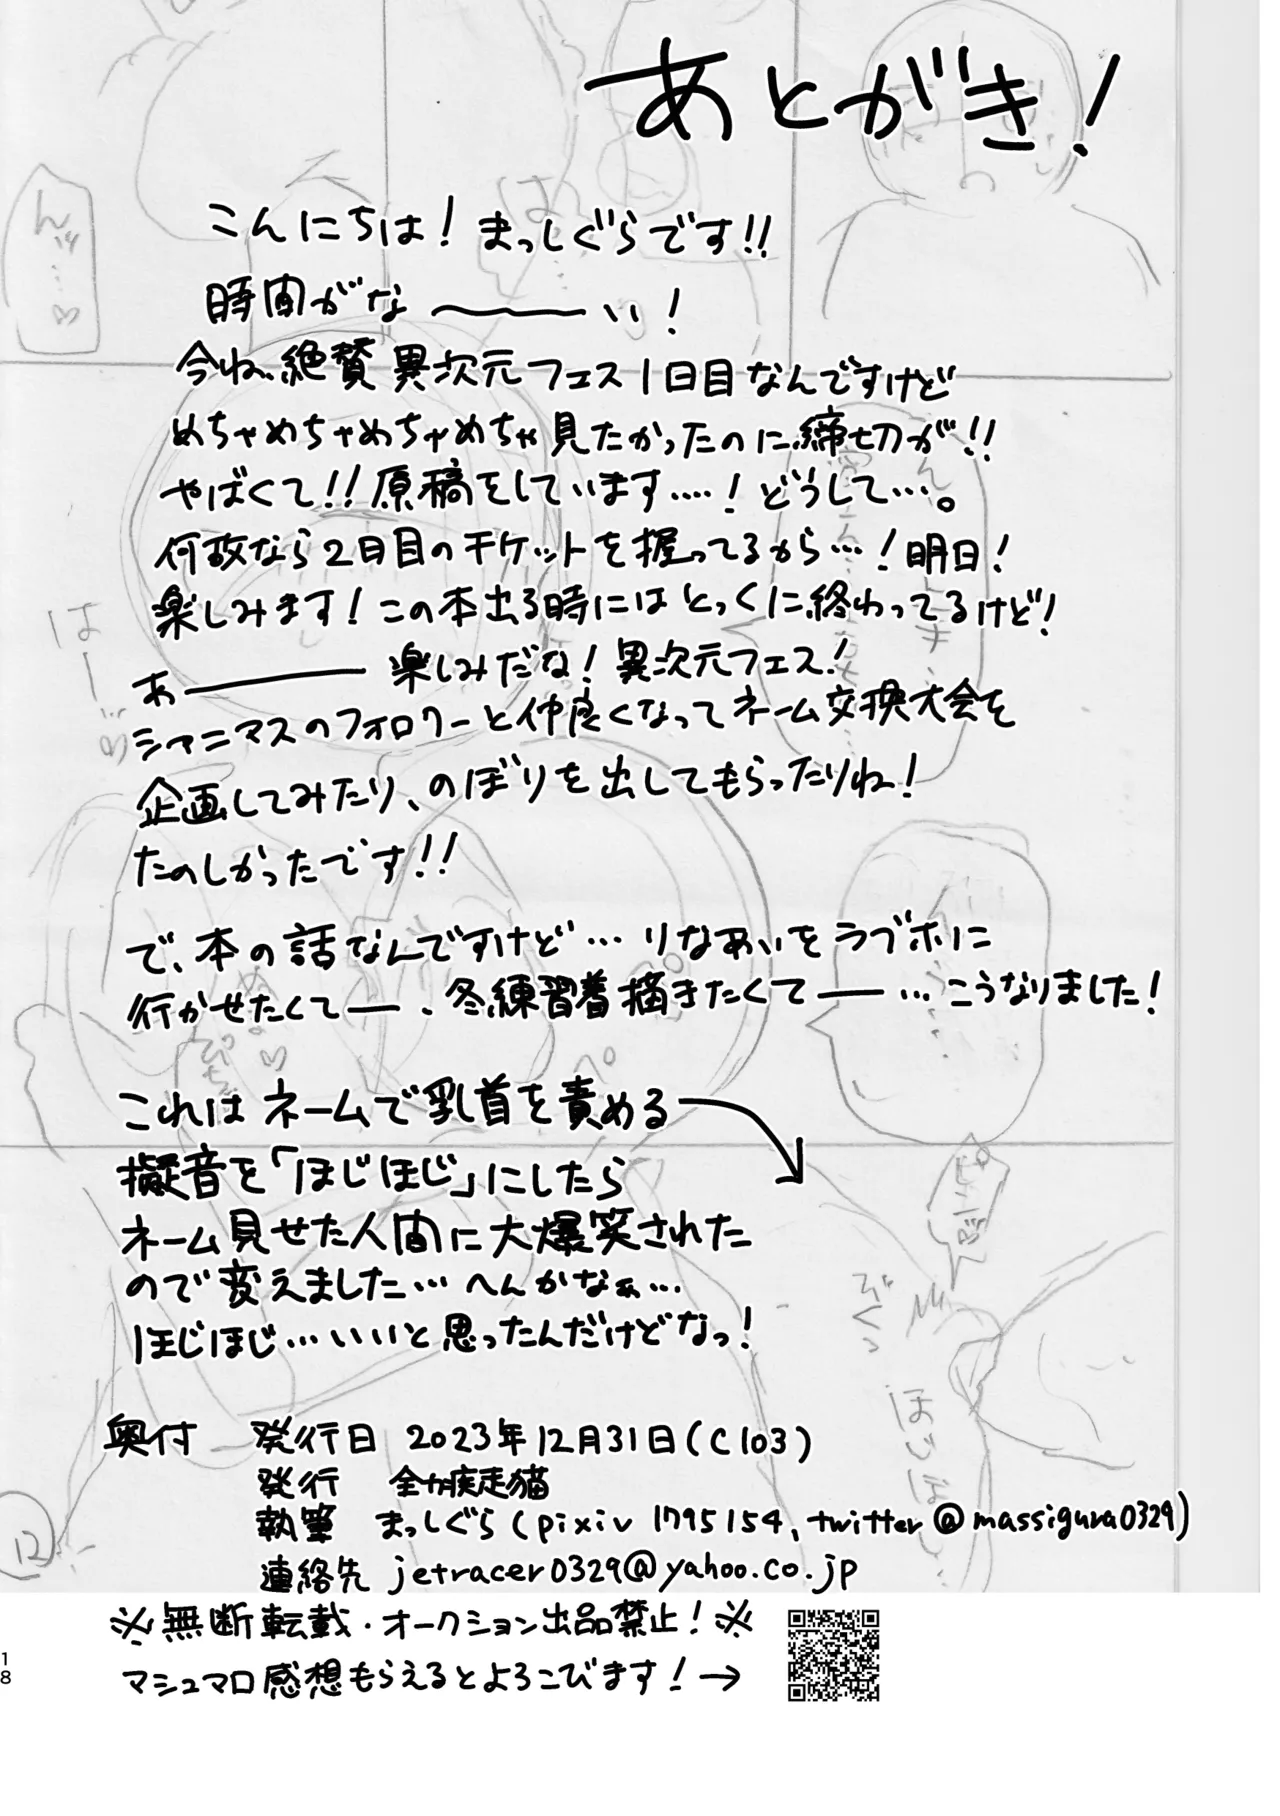 あとがき！
こんにちは！まっしぐらです!!
時間がな〜い！
今ね、絶賛異次元フェス1日目なんですけど
めちゃめちゃめちゃめちゃ見たかったのに締切が!!
やばくて!!原稿をしています….！どうして…。
何故なら2日目のチケットを握ってるから…！明日！
楽しみます！この本出る時にはとっくに終わってるけど！
あー楽しみだな！異次元フェス！
シャニマスのフォロワーと仲良くなってネーム交換大会を
企画してみたり、のぼりを出してもらったりね！
たのしかったです!!
で、本の話なんですけど…りなあいをラブホに
行かせたくてー、冬練習着描きたくてー…こうなりました！
これはネームで乳首を責める
擬音を「ほじほじ」にしたら
ネーム見せた人間に大爆笑された
ので変えました…へんかなぁ…
ほじほじ…いいと思ったんだけどなっ！
びくっ
ほじほじ
はー…♡
ん゛…♡
12
奥付 発行日 2023年12月31日(C103)
発行 全力疾走猫
執筆 まっしぐら(pixiv 1795154、twitter@massigura0329)
連絡先 jetracer0329@yahoo.co.jp
※無断転載・オークション出品禁止！※
マシュマロ感想もらえるとよろこびます！→
18